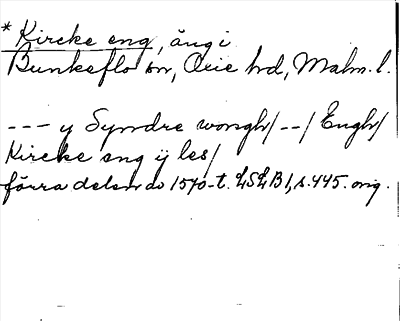 * Kircke eng, äng i
Bunkeflo sn, Oxie hd, Malm. l.
--- y Syndre wongh/--/Engh/
Kircke eng ij les/
förra delen av 1570-t. LSLB 1, s. 445. orig.